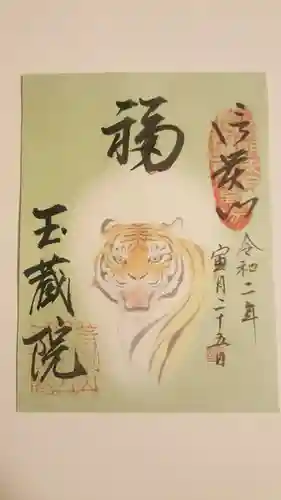 信貴山
福
令和二年
寅月二十五日
玉蔵院